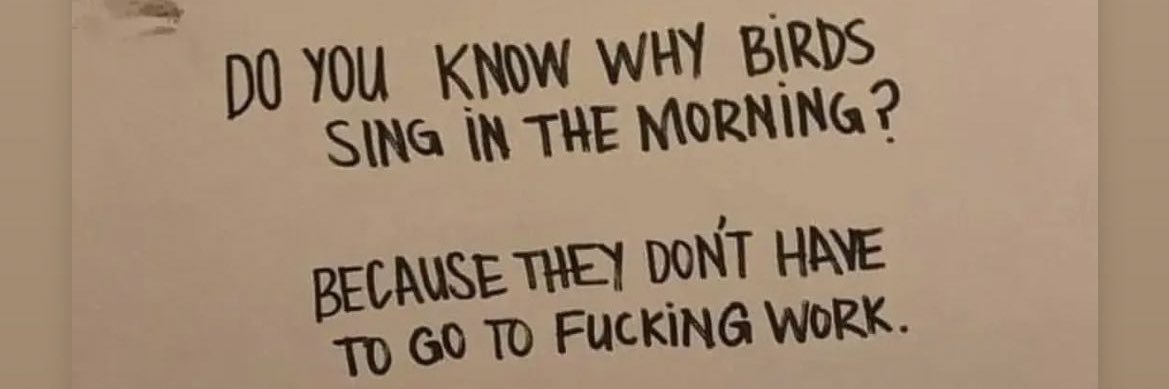 DO YOU KNOW WHY BIRDS
SING IN THE MORNING?
BECAUSE THEY DON'T HAVE
TO GO TO FUCKING WORK.